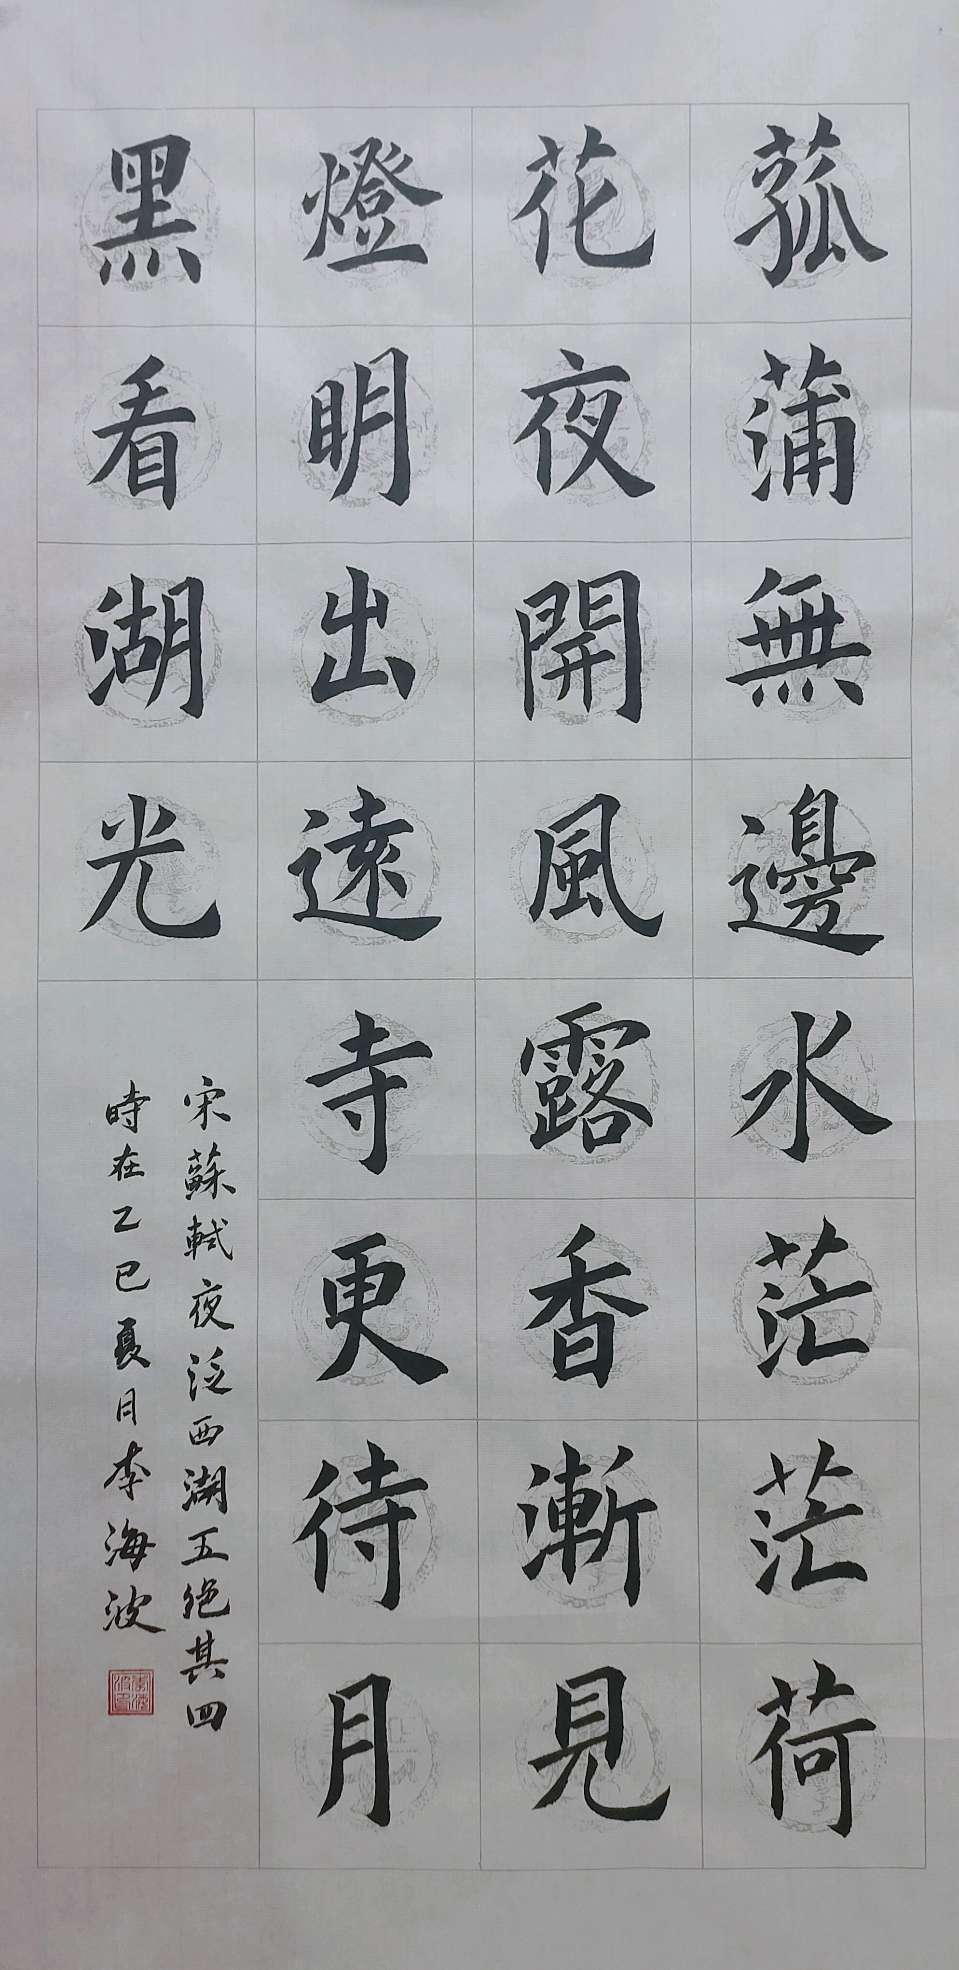 菰蒲無邊水茫茫荷
花夜開風露香漸見
燈明出遠寺更待月
黑看湖光
宋蘇軾夜泛西湖五絕其四
時在乙巳夏月李海波